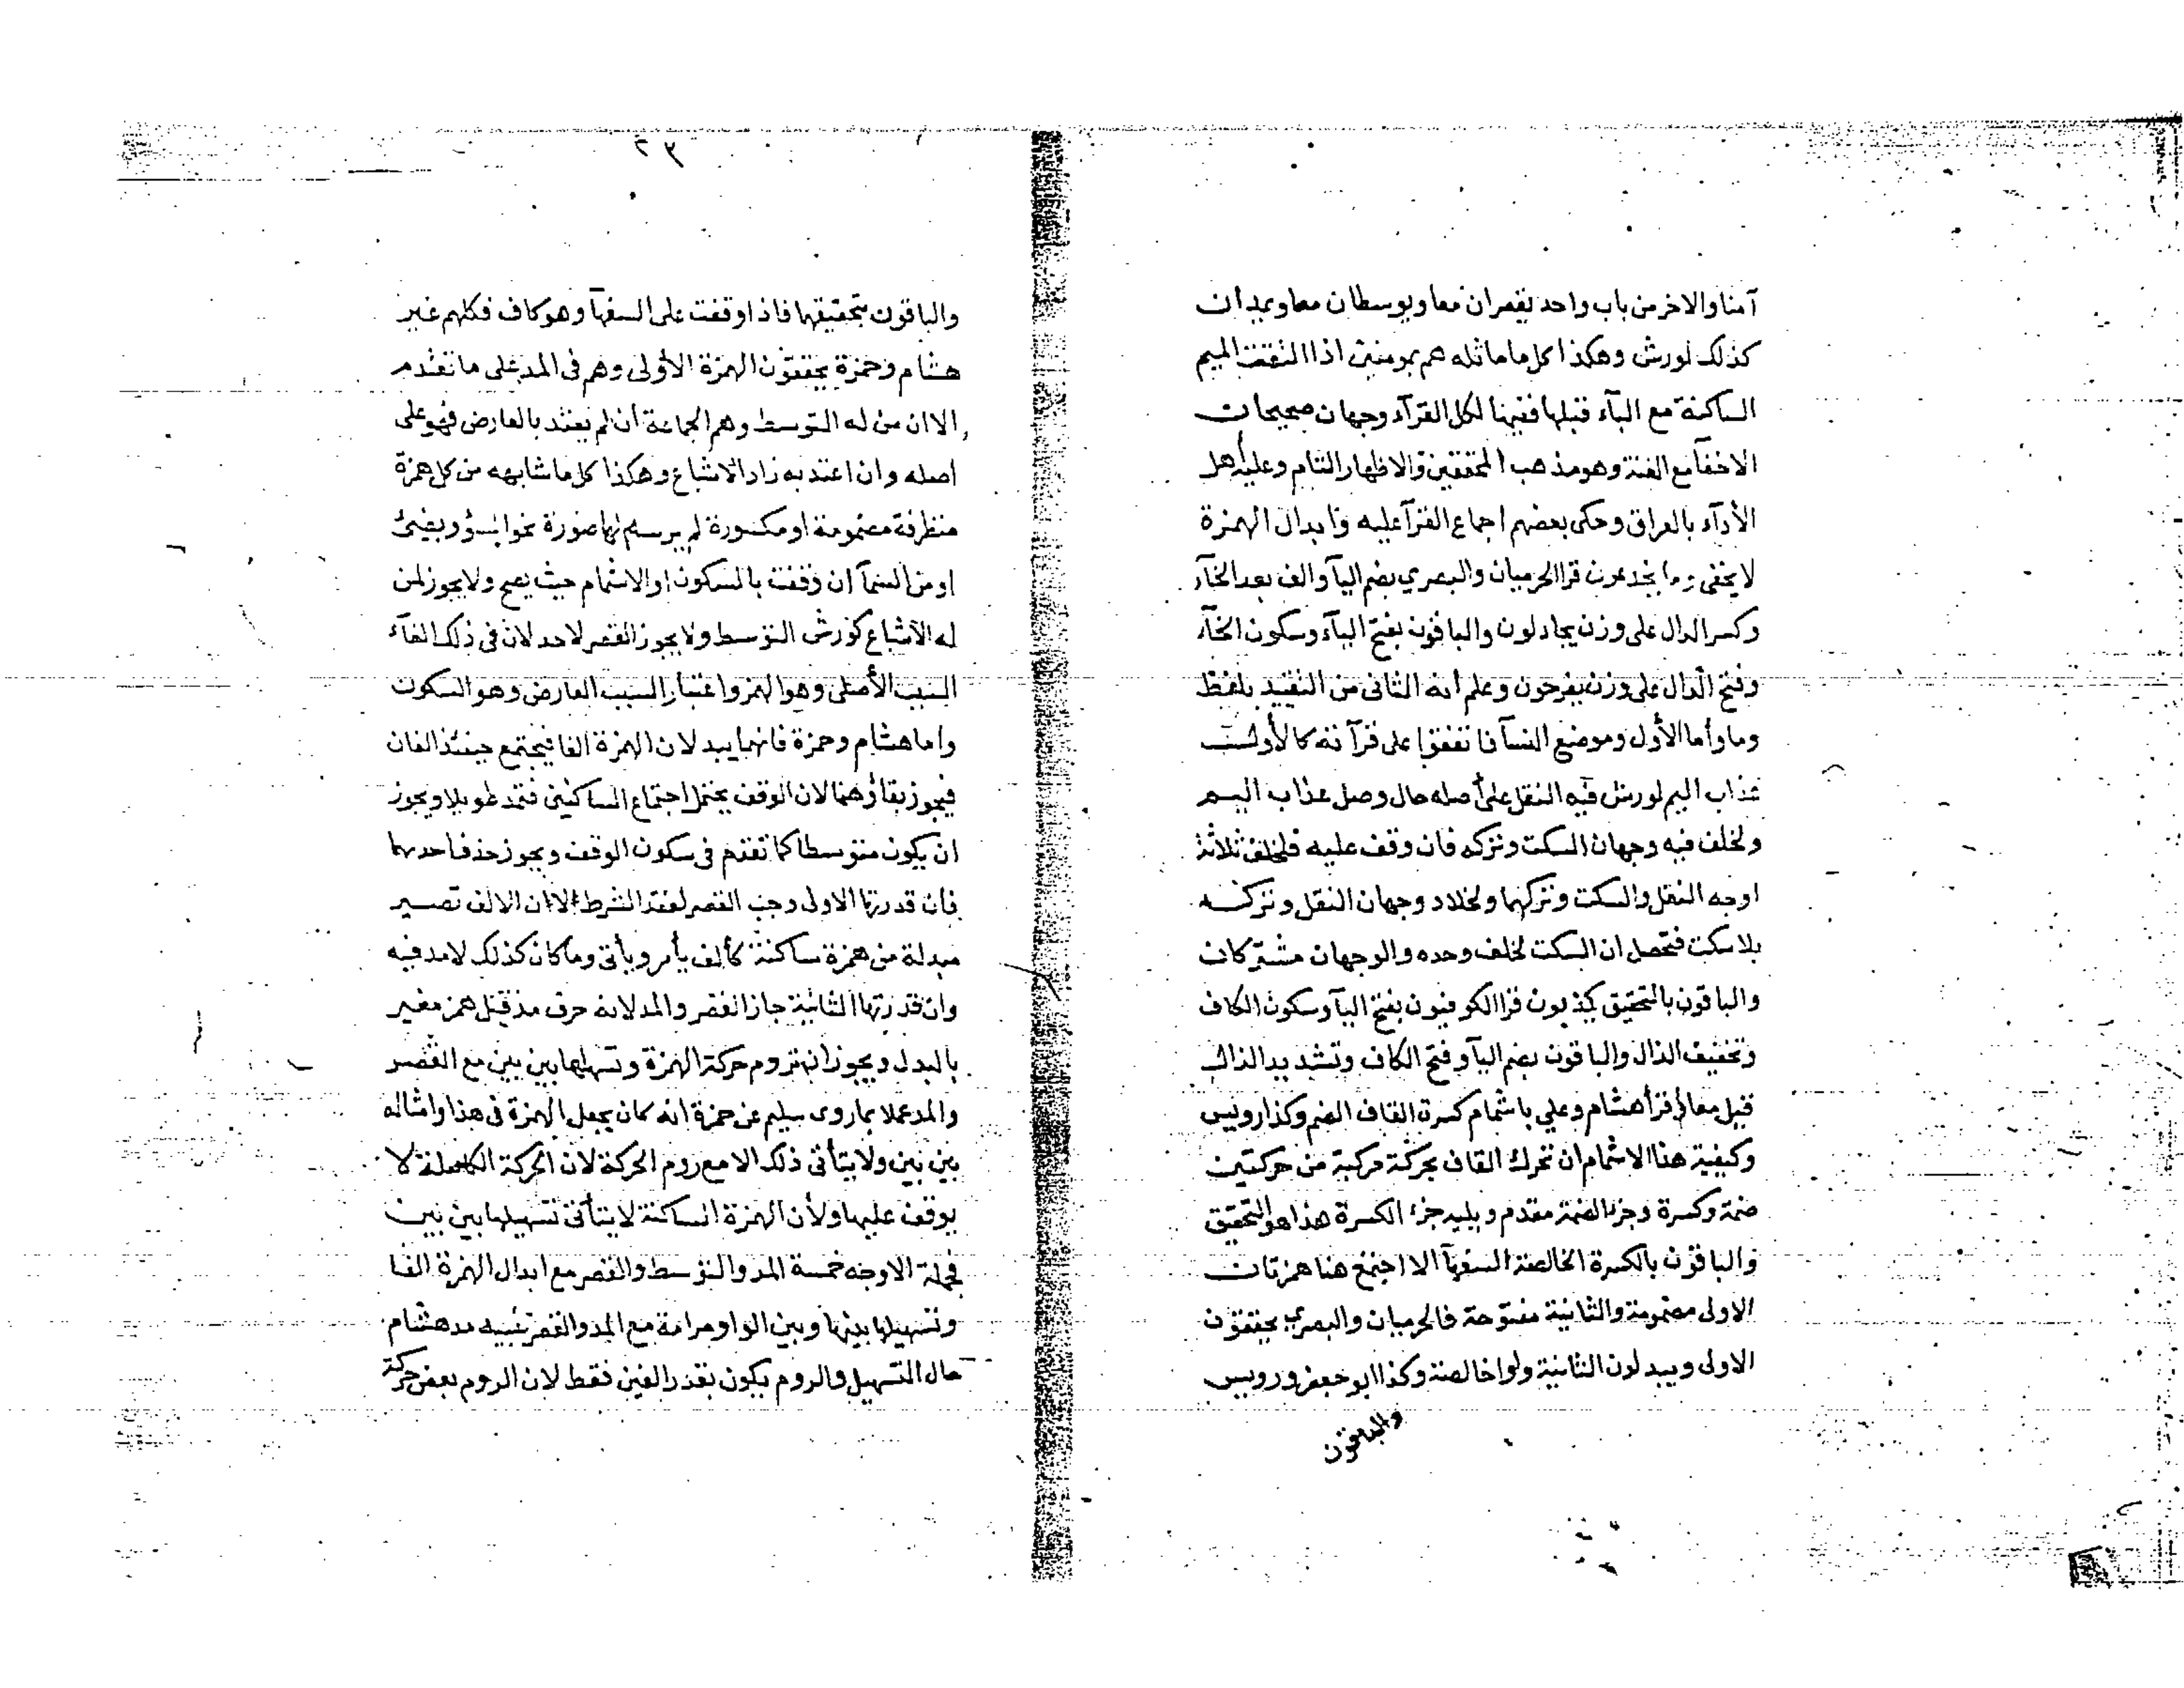 آمنا والاخر من باب واحد يقصران معا ويوسطان معا ويمدان
كذلك لورش وهكذا كل ما ماثله هم بمومنين اذا التقت الميم
الساكنة مع البآء قبلها ففيها لكل القرآء وجهان صحيحان
الاخفآ مع الغنة وهو مذهب المحققين والاظهار التام وعليه أهل
الأدآء بالعراق وحكى بعضهم اجماع القرآ عليه وابدال الهمزة
لا يخفى وما يخدعون قرا الحرميان والبصري بضم اليآ والف بعد الخآء
وكسر الدال على وزن يجادلون والباقون بفتح اليآء وسكون الخآء
وفتح الدال على وزن يفرحون وعلم أنه الثاني من التقييد بلفظ
وما وأما الأول وموضع النسآ فاتفقوا على قرآته كالأول
عذاب اليم لورش فيه النقل على أصله حال وصل عذاب اليم
ولخلف فيه وجهان السكت وتركه فان وقف عليه فلخلف ثلاثة
اوجه النقل والسكت وتركهما ولخلاد وجهان النقل وتركه
بلا سكت فتحصل ان السكت لخلف وحده والوجهان مشتركان
والباقون بالتحقيق يكذبون قرا الكوفيون بفتح اليآ وسكون الكاف
وتخفيف الذال والباقون بضم اليآ وفتح الكاف وتشديد الذال
قيل معا قرأ هشام وعلي باشمام كسرة القاف الضم وكذا رويس
وكيفية هذا الاشمام ان تحرك القاف بحركة مركبة من حركتين
ضمة وكسرة وجزء الضمة مقدم ويليه جزء الكسرة هذا هو التحقيق
والباقون بالكسرة الخالصة السفهآ الا اجتمع هنا همزتان
الاولى مضمومة والثانية مفتوحة فالحرميان والبصري يحققون
الاولى ويبدلون الثانية واوا خالصة وكذا ابو جعفر ورويس
والباقون
٢٣
والباقون بتحقيقها فاذا وقفت على السفهآ وهو كاف فكلهم غير
هشام وحمزة يحققون الهمزة الأولى وهم في المد على ما تقدم
الا ان من له التوسط وهم الجماعة ان لم يعتد بالعارض فهو على
اصله وان اعتد به زاد الاشباع وهكذا كل ما شابهه من كل همزة
متطرفة مضمومة او مكسورة لم يرسم لها صورة نحو يسؤ ويضئ
او من السمآ ان وقفت بالسكون او الاشمام حيث يصح ولا يجوز لمن
له الاشباع كورش التوسط ولا يجوز القصر لاحد لان في ذلك الغآء
السبب الأصلي وهو الهمز واعتبار السبب العارض وهو السكون
واما هشام وحمزة فانهما يبدلان الهمزة الفا فيجتمع حينئذ الفان
فيجوز بقاؤهما لان الوقف يحتمل اجتماع الساكنين فتمد طويلا ويجوز
ان يكون متوسطا كما تقدم في سكون الوقف ويجوز حذف احدهما
فان قدرتها الاولى وجب القصر لفقد الشرط الا ان الالف تصير
مبدلة من همزة ساكنة كألف يأمر ويأتى وما كان كذلك لا مد فيه
وان قدرتها الثانية جاز القصر والمد لانه حرف مد قبل همز مغير
بالبدل ويجوز ان تروم حركة الهمزة وتسهلها بين بين مع القصر
والمد عملا بما روى سليم عن حمزة انه كان يجعل الهمزة في هذا وامثاله
بين بين ولا يتأتى ذلك الا مع روم الحركة لان الحركة الكاملة لا
يوقف عليها ولأن الهمزة الساكنة لا يتأتى تسهيلها بين بين
فجملة الاوجه خمسة المد والتوسط والقصر مع ابدال الهمزة الفا
وتسهيلها بينها وبين الواو مرامة مع المد والقصر تنبيه مد هشام
حال التسهيل والروم يكون بقدر الفين فقط لان الروم بعض حركة